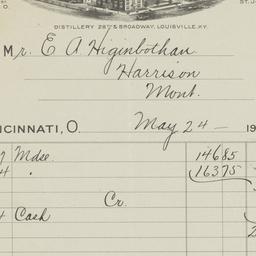 O.
ST. J
DISTILLERY 28TH & BROADWAY, LOUISVILLE, KY.
Mr. E A Higinbothan
Harrison
Mont.
NCINNATI, O. May 24 — 19
7 Mdse 14685
4 " 16375
Cr.
4 Cash 2